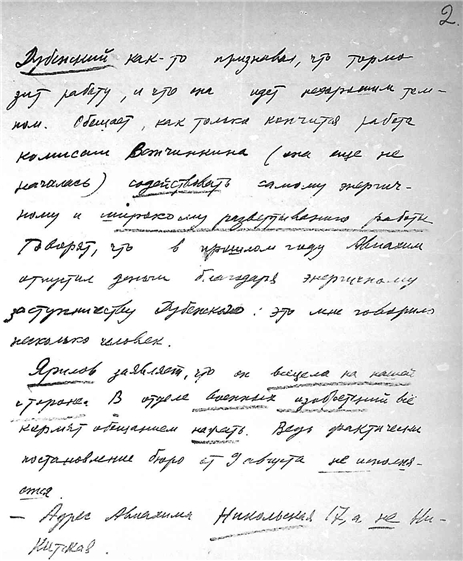 2.
Дубенский как-то признавал, что тормо
зит работу, и что она идет нехорошим тем-
пом. Обещает, как только кончится работа
комиссии Ветчинкина (она еще не
началась) содействовать самому энергич-
ному и широкому развертыванию работы
Говорят, что в прошлом году Авиахим
отпустил деньги благодаря энергичному
заступничеству Дубенского: это мне говорило
несколько человек.
Ярилов заявляет, что он всецело на нашей
стороне. В отделе военных изобретений всё
кормят обещанием начать. Ведь фактически
постановление бюро от 9 августа не исполня-
ется.
– Адрес Авиахима Никольская 17, а не Ни-
китская.